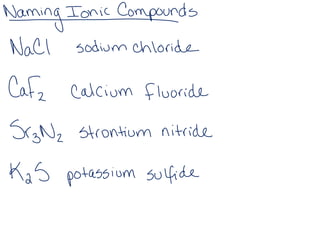 Naming Ionic Compounds
NaCl sodium chloride
CaF₂ calcium fluoride
Sr₃N₂ strontium nitride
K₂S potassium sulfide